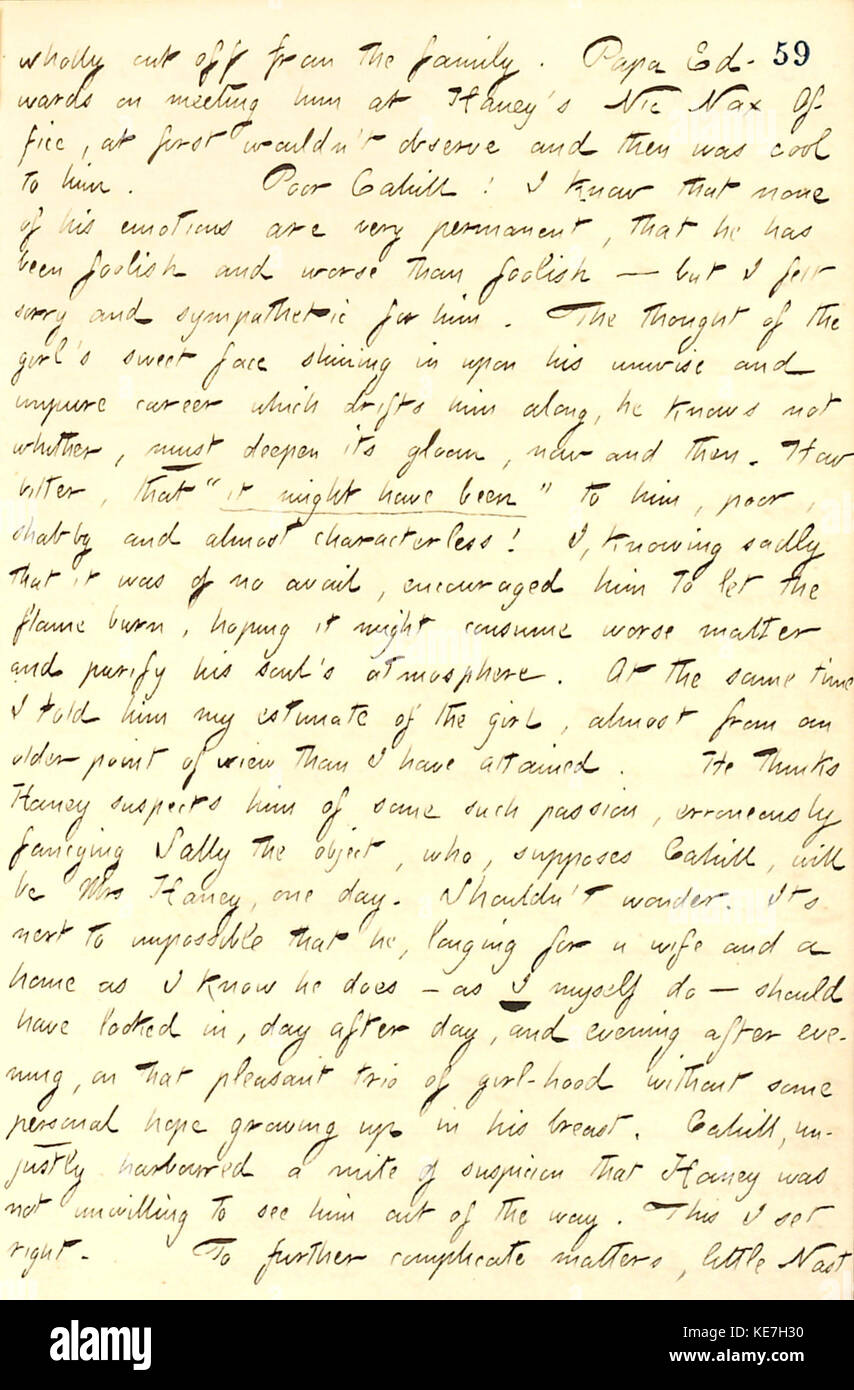 59
wholly cut off from the family. Papa Ed-
wards on meeting him at Haney's Nic Nax Of-
fice, at first wouldn't observe and then was cool
to him. Poor Cahill! I know that none
of his emotions are very permanent, that he has
been foolish and worse than foolish — but I felt
sorry and sympathetic for him. The thought of the
girl's sweet face shining in upon his unwise and
impure career which drifts him along, he knows not
whither, must deepen its gloom, now and then. How
bitter, that "it might have been" to him, poor,
shabby and almost characterless! I, knowing sadly
that it was of no avail, encouraged him to let the
flame burn, hoping it might consume worse matter
and purify his soul's atmosphere. At the same time
I told him my estimate of the girl, almost from an
older point of view than I have attained. He thinks
Haney suspects him of some such passion, erroneously
fancying Sally the object, who, supposes Cahill, will
be Mrs Haney, one day. Shouldn't wonder. It's
next to impossible that he, longing for a wife and a
home as I know he does — as I myself do — should
have looked in, day after day, and evening after eve-
ning, on that pleasant trio of girl-hood without some
personal hope growing up in his breast. Cahill, un-
justly harboured a mite of suspicion that Haney was
not unwilling to see him out of the way. This I set
right. To further complicate matters, little Nast
alamy
Image ID: KE7H30
www.alamy.com